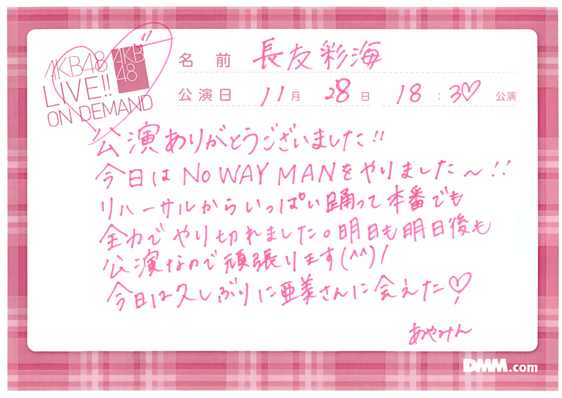 AKB48 AKB48
LIVE!!
ON DEMAND
名前 長友彩海
公演日 11月 28日 18:30 公演
公演ありがとうございました!!
今日は NO WAY MANをやりました〜!!
リハーサルからいっぱい踊って本番でも
全力でやり切れました。明日も明日後も
公演なので頑張ります(^^)!
今日は久しぶりに亜美さんに会えた♡
あやみん
DMM.com